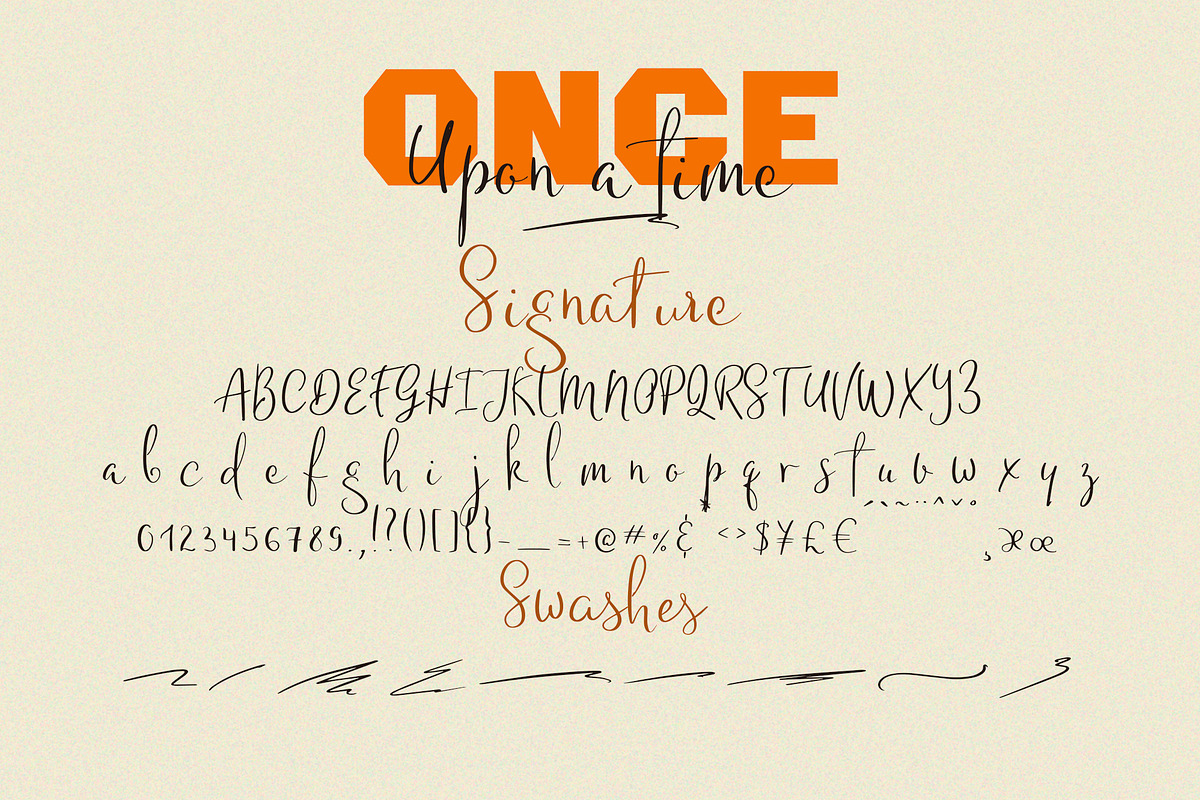 ONCE
Upon a time
Signature
ABCDEFGHIJKLMNOPQRSTUVWXYZ
a b c d e f g h i j k l m n o p q r s t u v w x y z
0123456789.,!?()[]{}-_=+@#%&*<>$¥£€ ´`~¨^ˇ° ¸æœ
Swashes